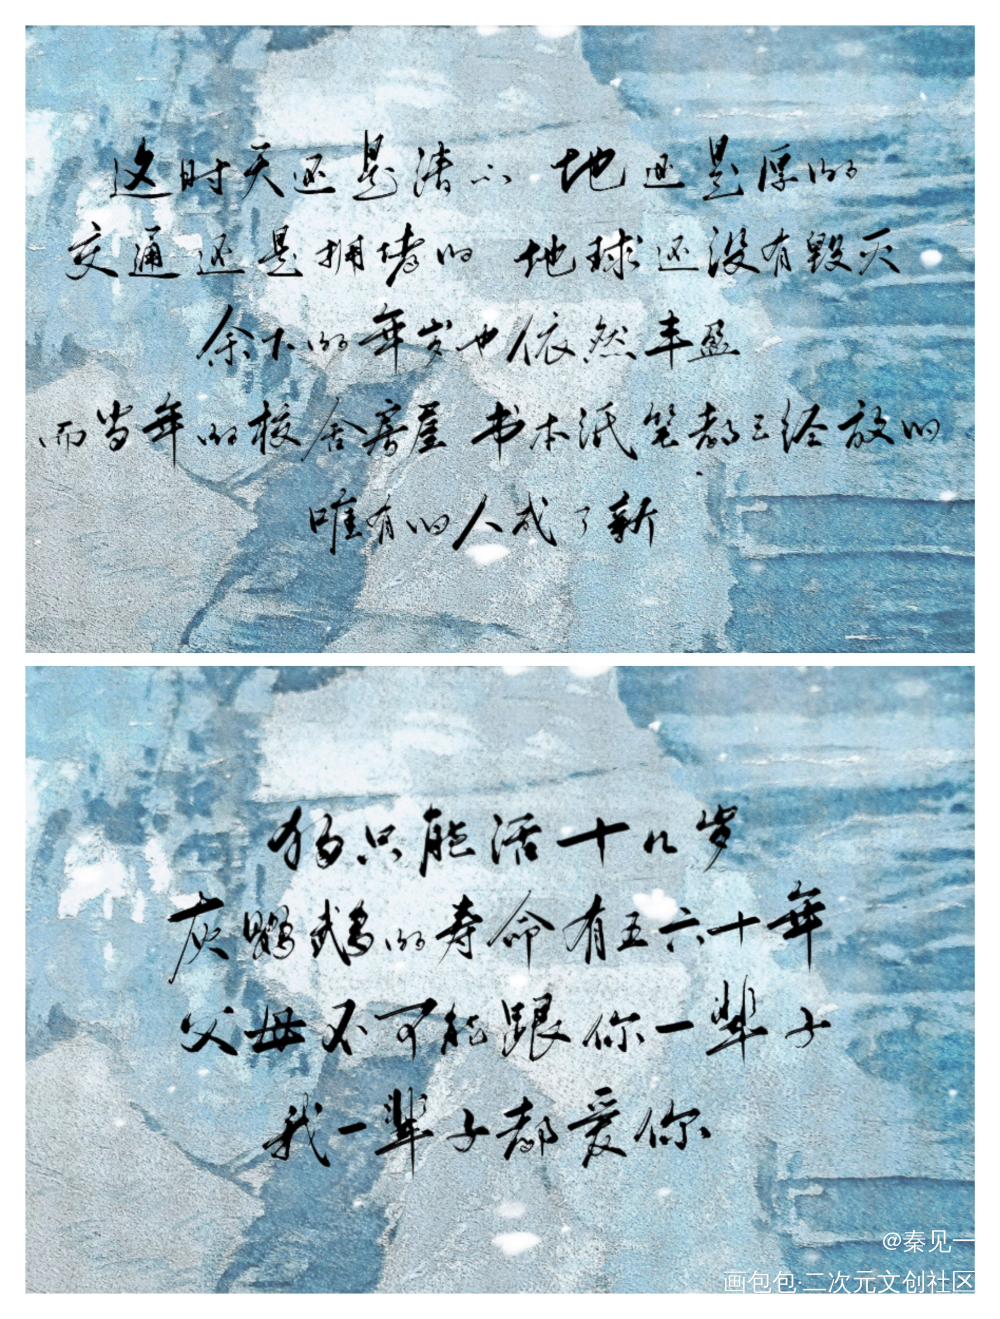 这时天还是清的 地还是厚的
交通还是拥堵的 地球还没有毁灭
余下的年岁也依然丰盈
而当年的校舍房屋 书本纸笔都已经放旧
唯有旧人成了新
狗只能活十几岁
灰鹦鹉的寿命有五六十年
父母不可能跟你一辈子
我一辈子都爱你
@秦见一
画包包·二次元文创社区